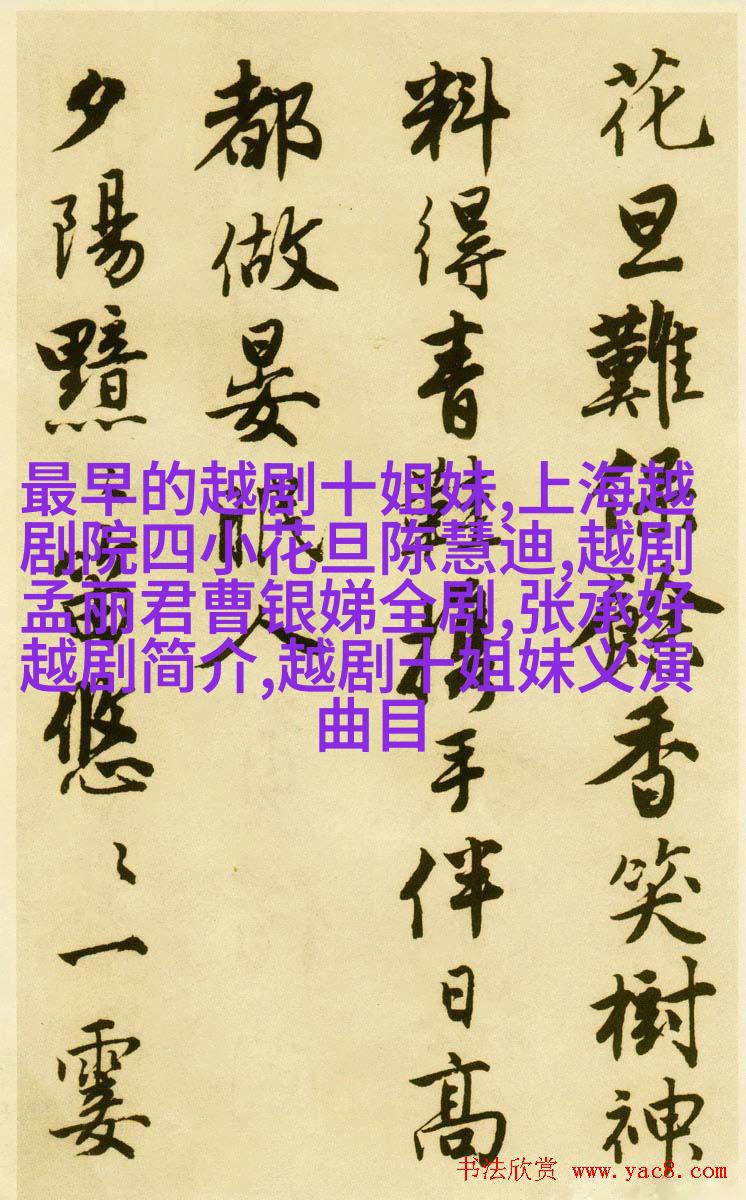 花旦難
香笑樹神
料得青
手伴日高
都做晏
人
夕陽黯
悠〻一霎
最早的越剧十姐妹,上海越
剧院四小花旦陈慧迪,越剧
孟丽君曹银娣全剧,张承好
越剧简介,越剧十姐妹义演
曲目
书法欣赏 www.yac8.com